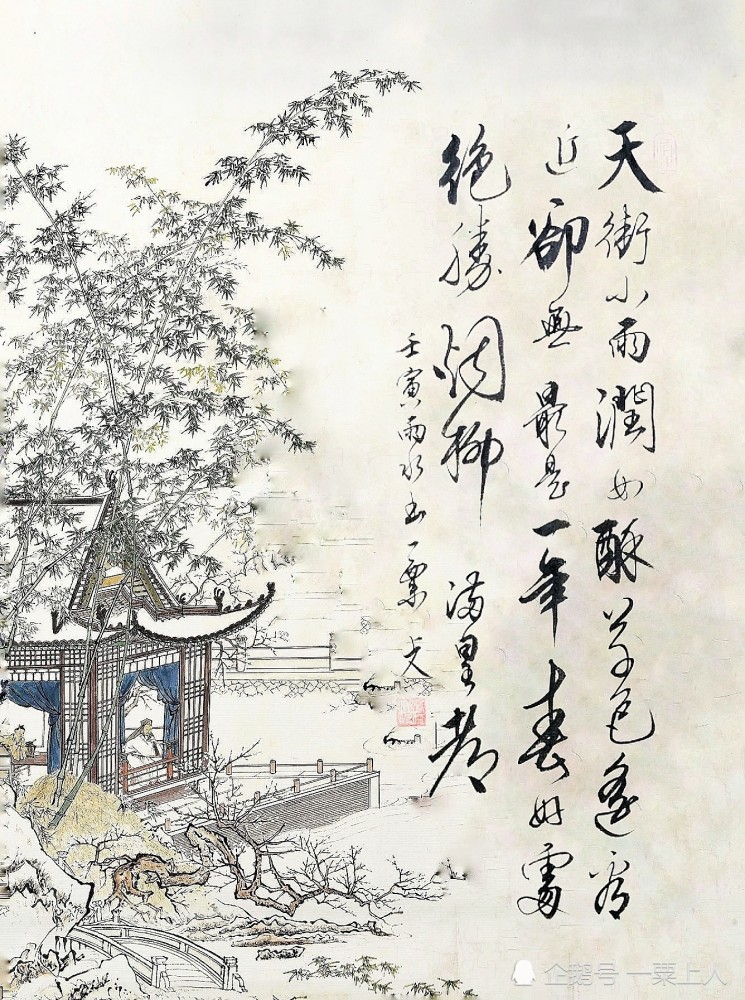 天街小雨潤如酥草色遙看
近卻無最是一年春好處
絶勝烟柳滿皇都
壬寅雨水书一粟上人
企鹅号 一粟上人